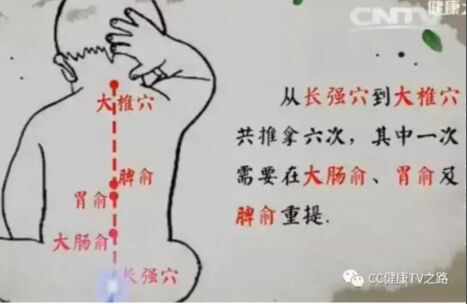 CNTV
健康之
大椎穴
脾俞
胃俞
大肠俞
长强穴
从长强穴到大椎穴
共推拿六次，其中一次
需要在大肠俞、胃俞及
脾俞重提.
CC健康TV之路